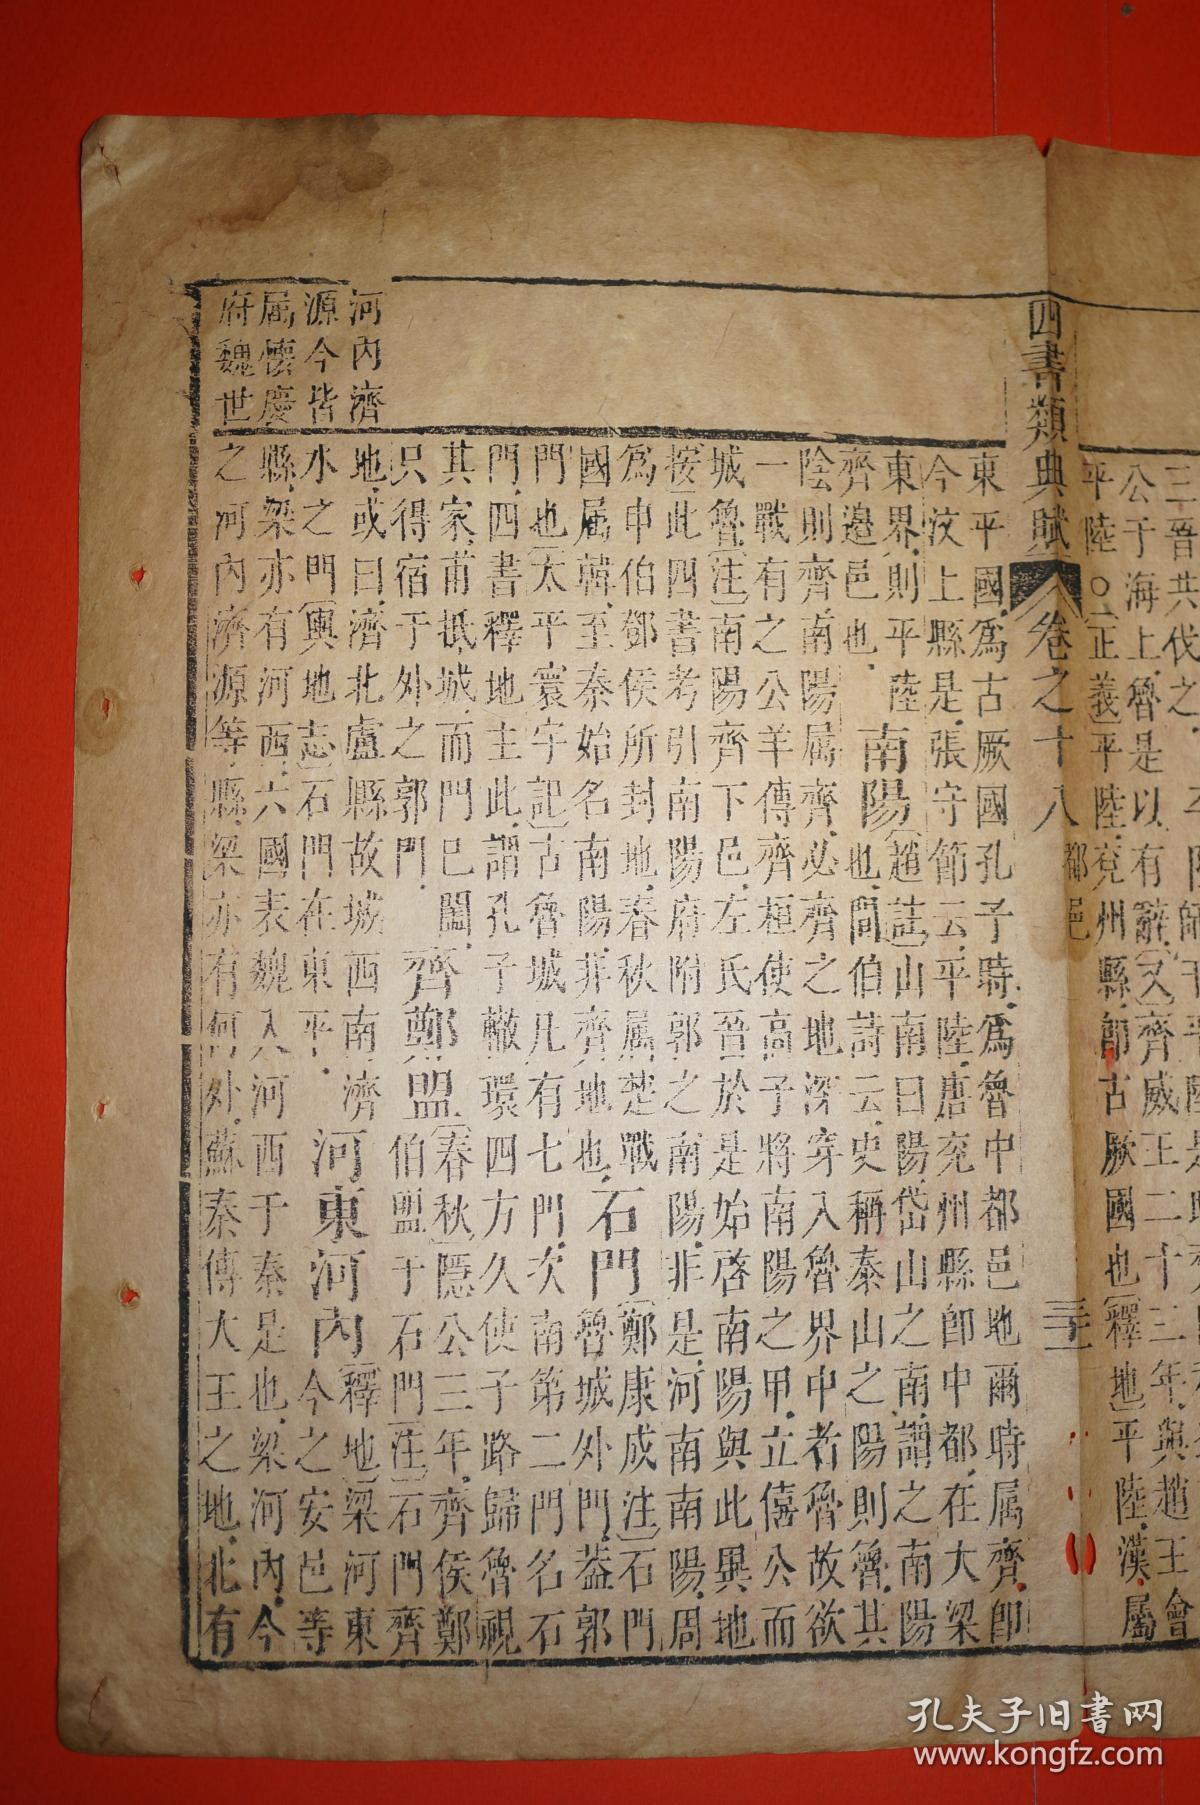 三晉共伐之
公于海上魯是以有辭又齊威王二十三年與趙王會
平陸○正義平陸兗州縣即古厥國也釋地平陸漢屬
四書類典賦
卷之十八
都邑
東平國為古厥國孔子時為魯中都邑地爾時属齊即
今汶上縣是張守節云平陸唐兗州縣即中都在大梁
東界則平陸
南陽
趙註山南曰陽岱山之南謂之南陽
齊邉邑也
也閻伯詩云史稱泰山之陽則魯其
陰則齊南陽属齊必齊之地深穿入魯界中者魯故欲
一戰有之公羊傳齊桓使高子將南陽之甲立僖公而
城魯注南陽齊下邑左氏晉於是始啓南陽與此異地
按此四書考引南陽府附郭之南陽非是河南南陽周
為申伯鄧侯所封地春秋属楚戰
國属韓至秦始名南陽非齊地也
石門
鄭康成注石門
魯城外門葢郭
門也太平寰宇記古魯城凡有七門次南第二門名石
門四書釋地主此謂孔子轍環四方久使子路歸魯視
其家甫抵城而門已闔
只得宿于外之郭門
齊鄭盟
春秋隱公三年齊侯鄭
伯盟于石門注石門齊
地或曰濟北盧縣故城西南濟
水之門輿地志石門在東平
河東河內
釋地梁河東
今之安邑等
縣梁亦有河西六國表魏入河西于秦是也梁河內今
之河內濟源等縣梁亦有何外蘇秦傳大王之地北有
河內濟
源今皆
属懷慶
府魏世
孔夫子旧书网
www.kongfz.com